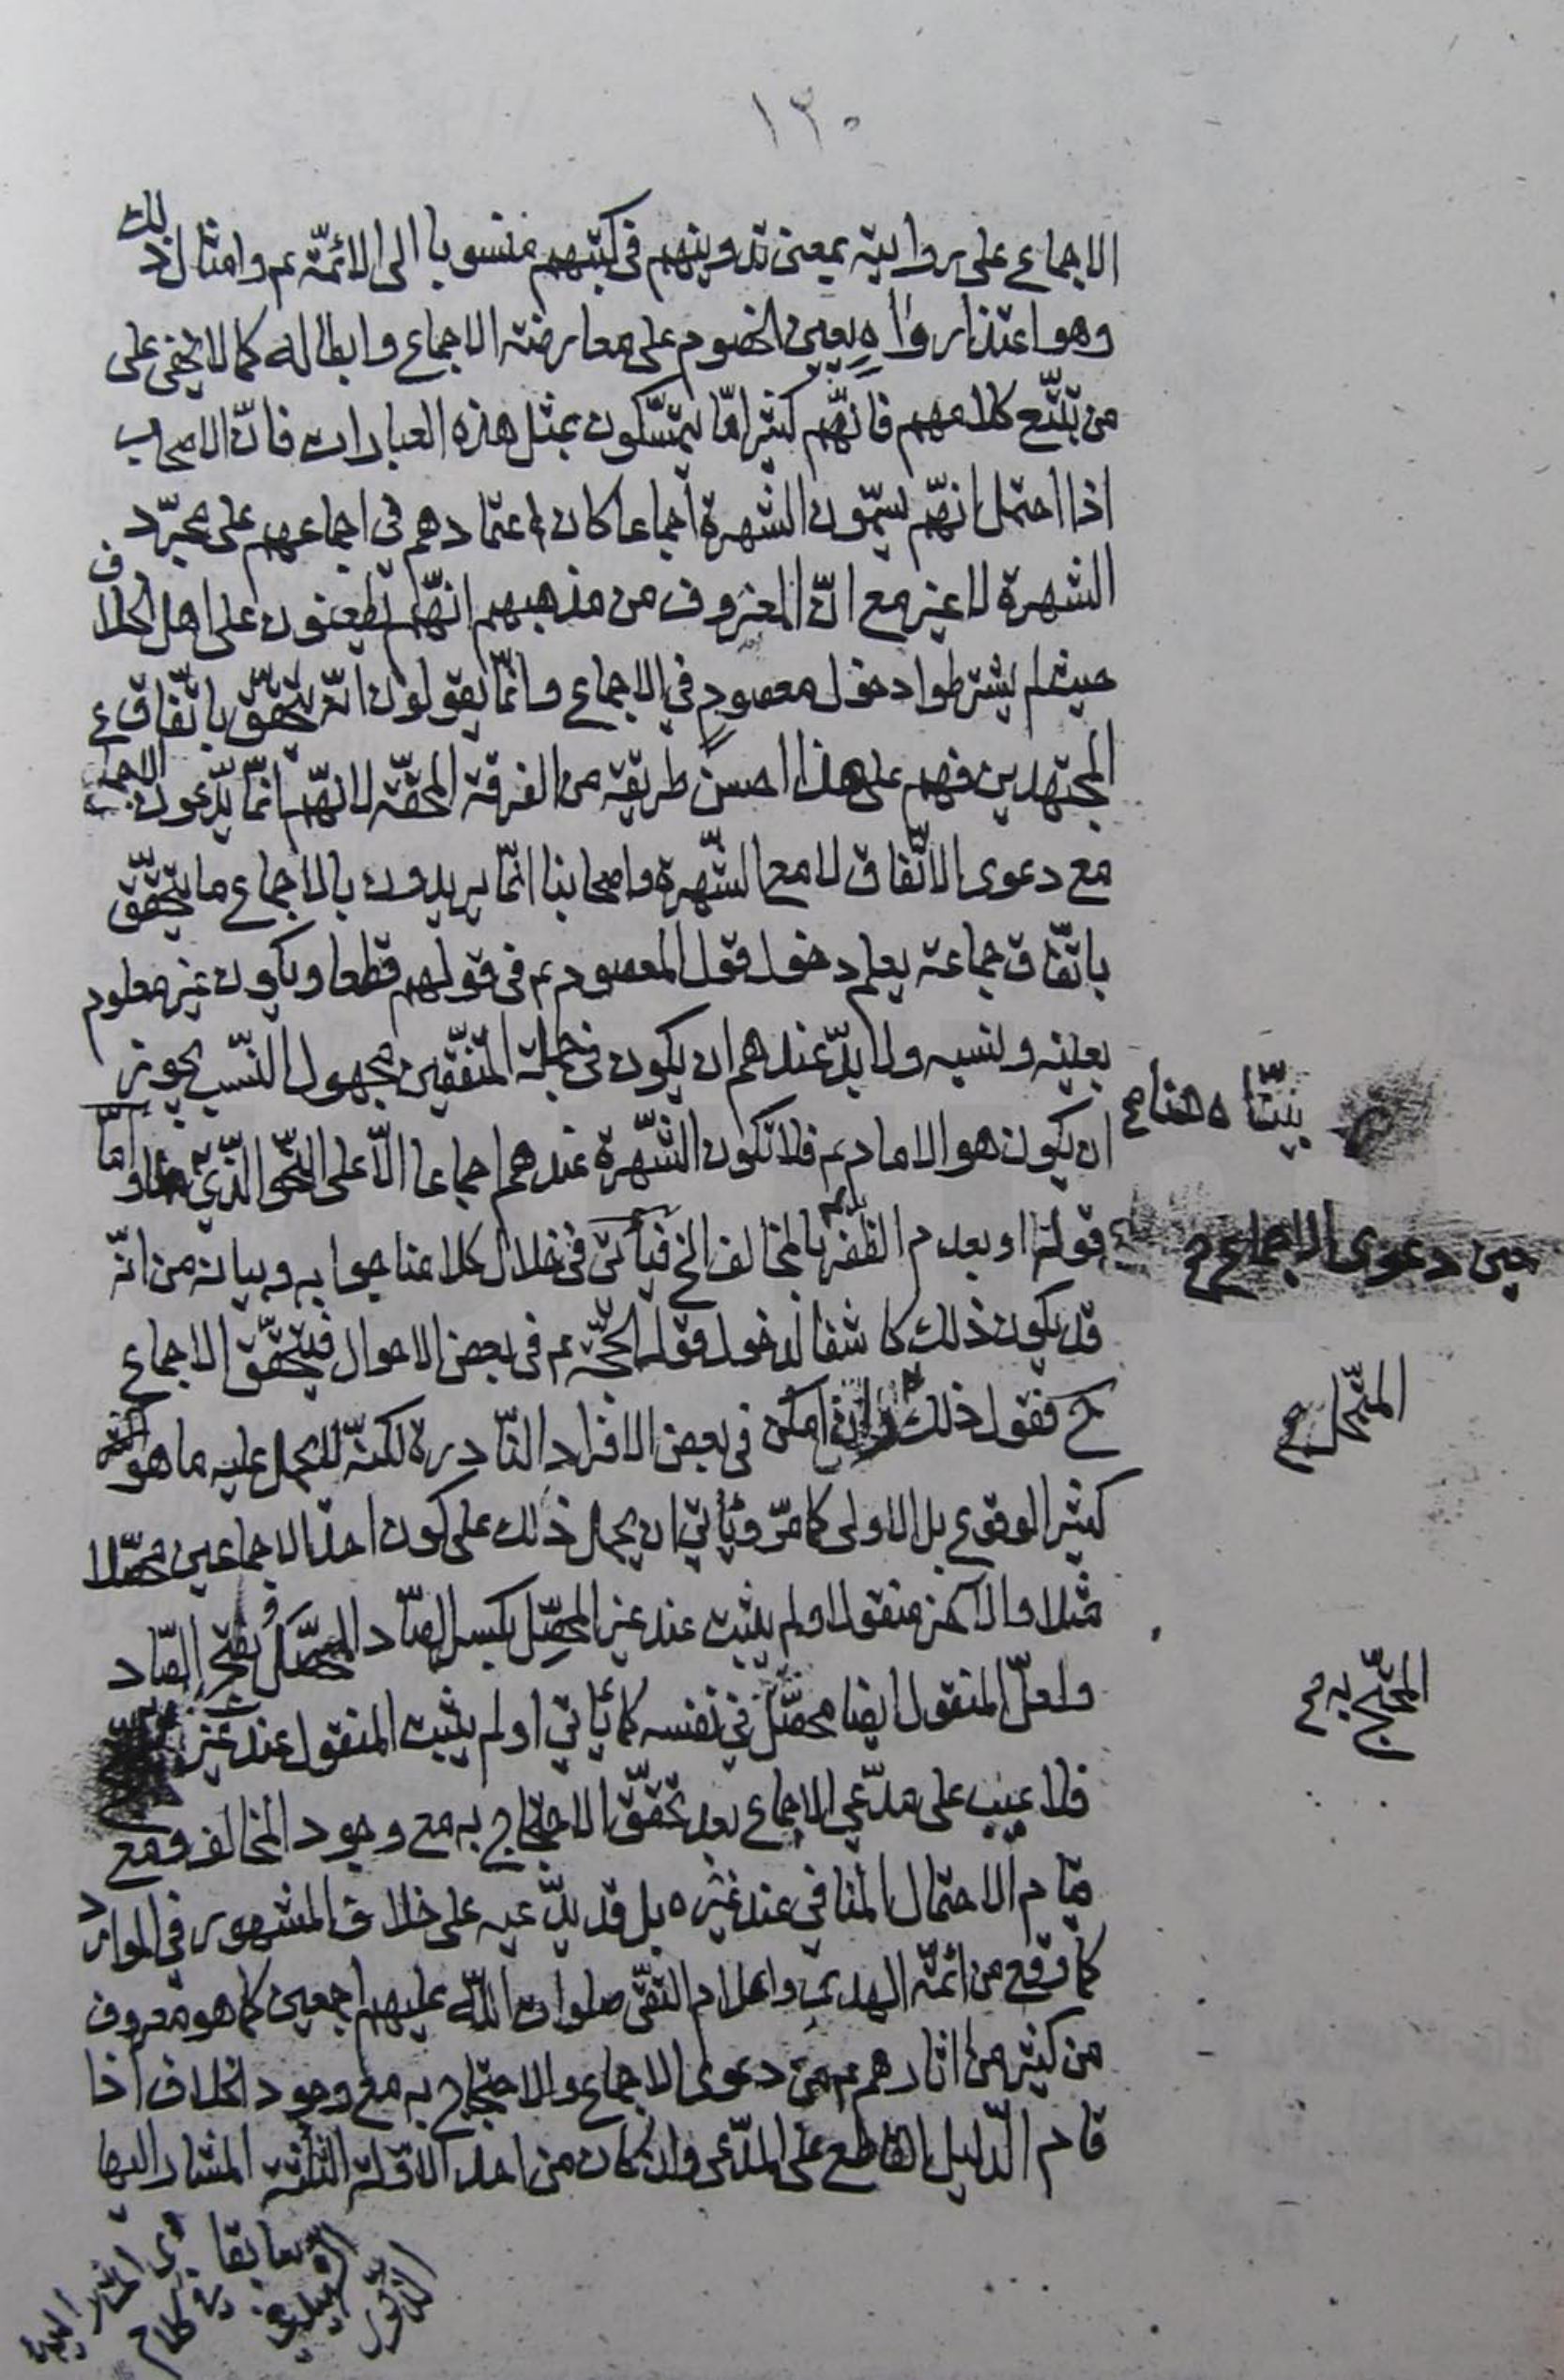 ١٣٠
الاجماع على روايته بمعنى تدوينهم فى كتبهم منسوبا الى الائمّة ع م وامثال ذلك
وهو اعتذار واه يعين الخصوم على معارضة الاجماع وابطاله كما لا يخفى على
من تتبّع كلامهم فانّهم كثيرا مّا يتمسّكون بمثل هذه العبارات فانّ الاصحاب
اذا احتمل انهّم يسمّون الشهرة اجماعا كان اعتمادهم فى اجماعهم على مجرّد
الشهرة لا غير مع انّ المعروف من مذهبهم انهّم يطعنون على اهل الخلاف
حيث لم يشترطوا دخول معصوم في الاجماع وانّما يقولون انّه يتحقّق باتّفاق
المجتهدين فهم على هذا احسن طريقة من الفرقة المحقّة لانّهم انّما يدّعون الاجماع
مع دعوى الاتّفاق لا مع الشّهرة واصحابنا انّما يريدون بالاجماع ما يتحقّق
باتّفاق جماعة يعلم دخول قول المعصوم ع م فى قولهم قطعا ويكون غير معلوم
بعينه ونسبه ولا بدّ عندهم ان يكون فى جملة المتّفقين مجهول النّسب يجوز
ان يكون هو الامام ع م فلا تكون الشّهرة عندهم اجماعا الّا على النّحو الّذي وامّا
بيّنّاه هنا صح
قوله او بعدم الظفر بالمخالف الخ فيأتى فى خلال كلامنا جوابه وبيانه من انّه
حين دعوى الاجماع صح
قد يكون ذلك كاشفا لدخول قول الحجّة ع م فى بعض الاحوال فيتحقّق الاجماع
ح فنقول ذلك وان امكن فى بعض الافراد النّادرة لكنّه لا يحمل عليه ما هو
كثير الوقوع بل الاولى كما مرّ ويأتي ان يحمل ذلك على كون احد الاجماعين محصّلا
مثلا والاخر منقولا ولم يثبت عند غير المحصّل بكسر الصّاد المحصّل بفتح الصّاد
ولعلّ المنقول ايضا محصّل في نفسه كما يأتي او لم يثبت المنقول عند غير
المحتجّ به صح
فلا عيب على مدّعي الاجماع بعد تحقّق الاحتجاج به مع وجود المخالف ومع
قيام الاحتمال المنافي عند غيره بل قد يدّعيه على خلاف المشهور فى الموارد
كما وقع من ائمّة الهدى واعلام التقى صلوات اللّه عليهم اجمعين كما هو معروف
من كثير من اثارهم ع م من دعوى الاجماع والاحتجاج به مع وجود الخلاف اذا
قام الّدليل القاطع على المدّعى وان كان من احد الادّلة الثلثة المشار اليها
سابقا